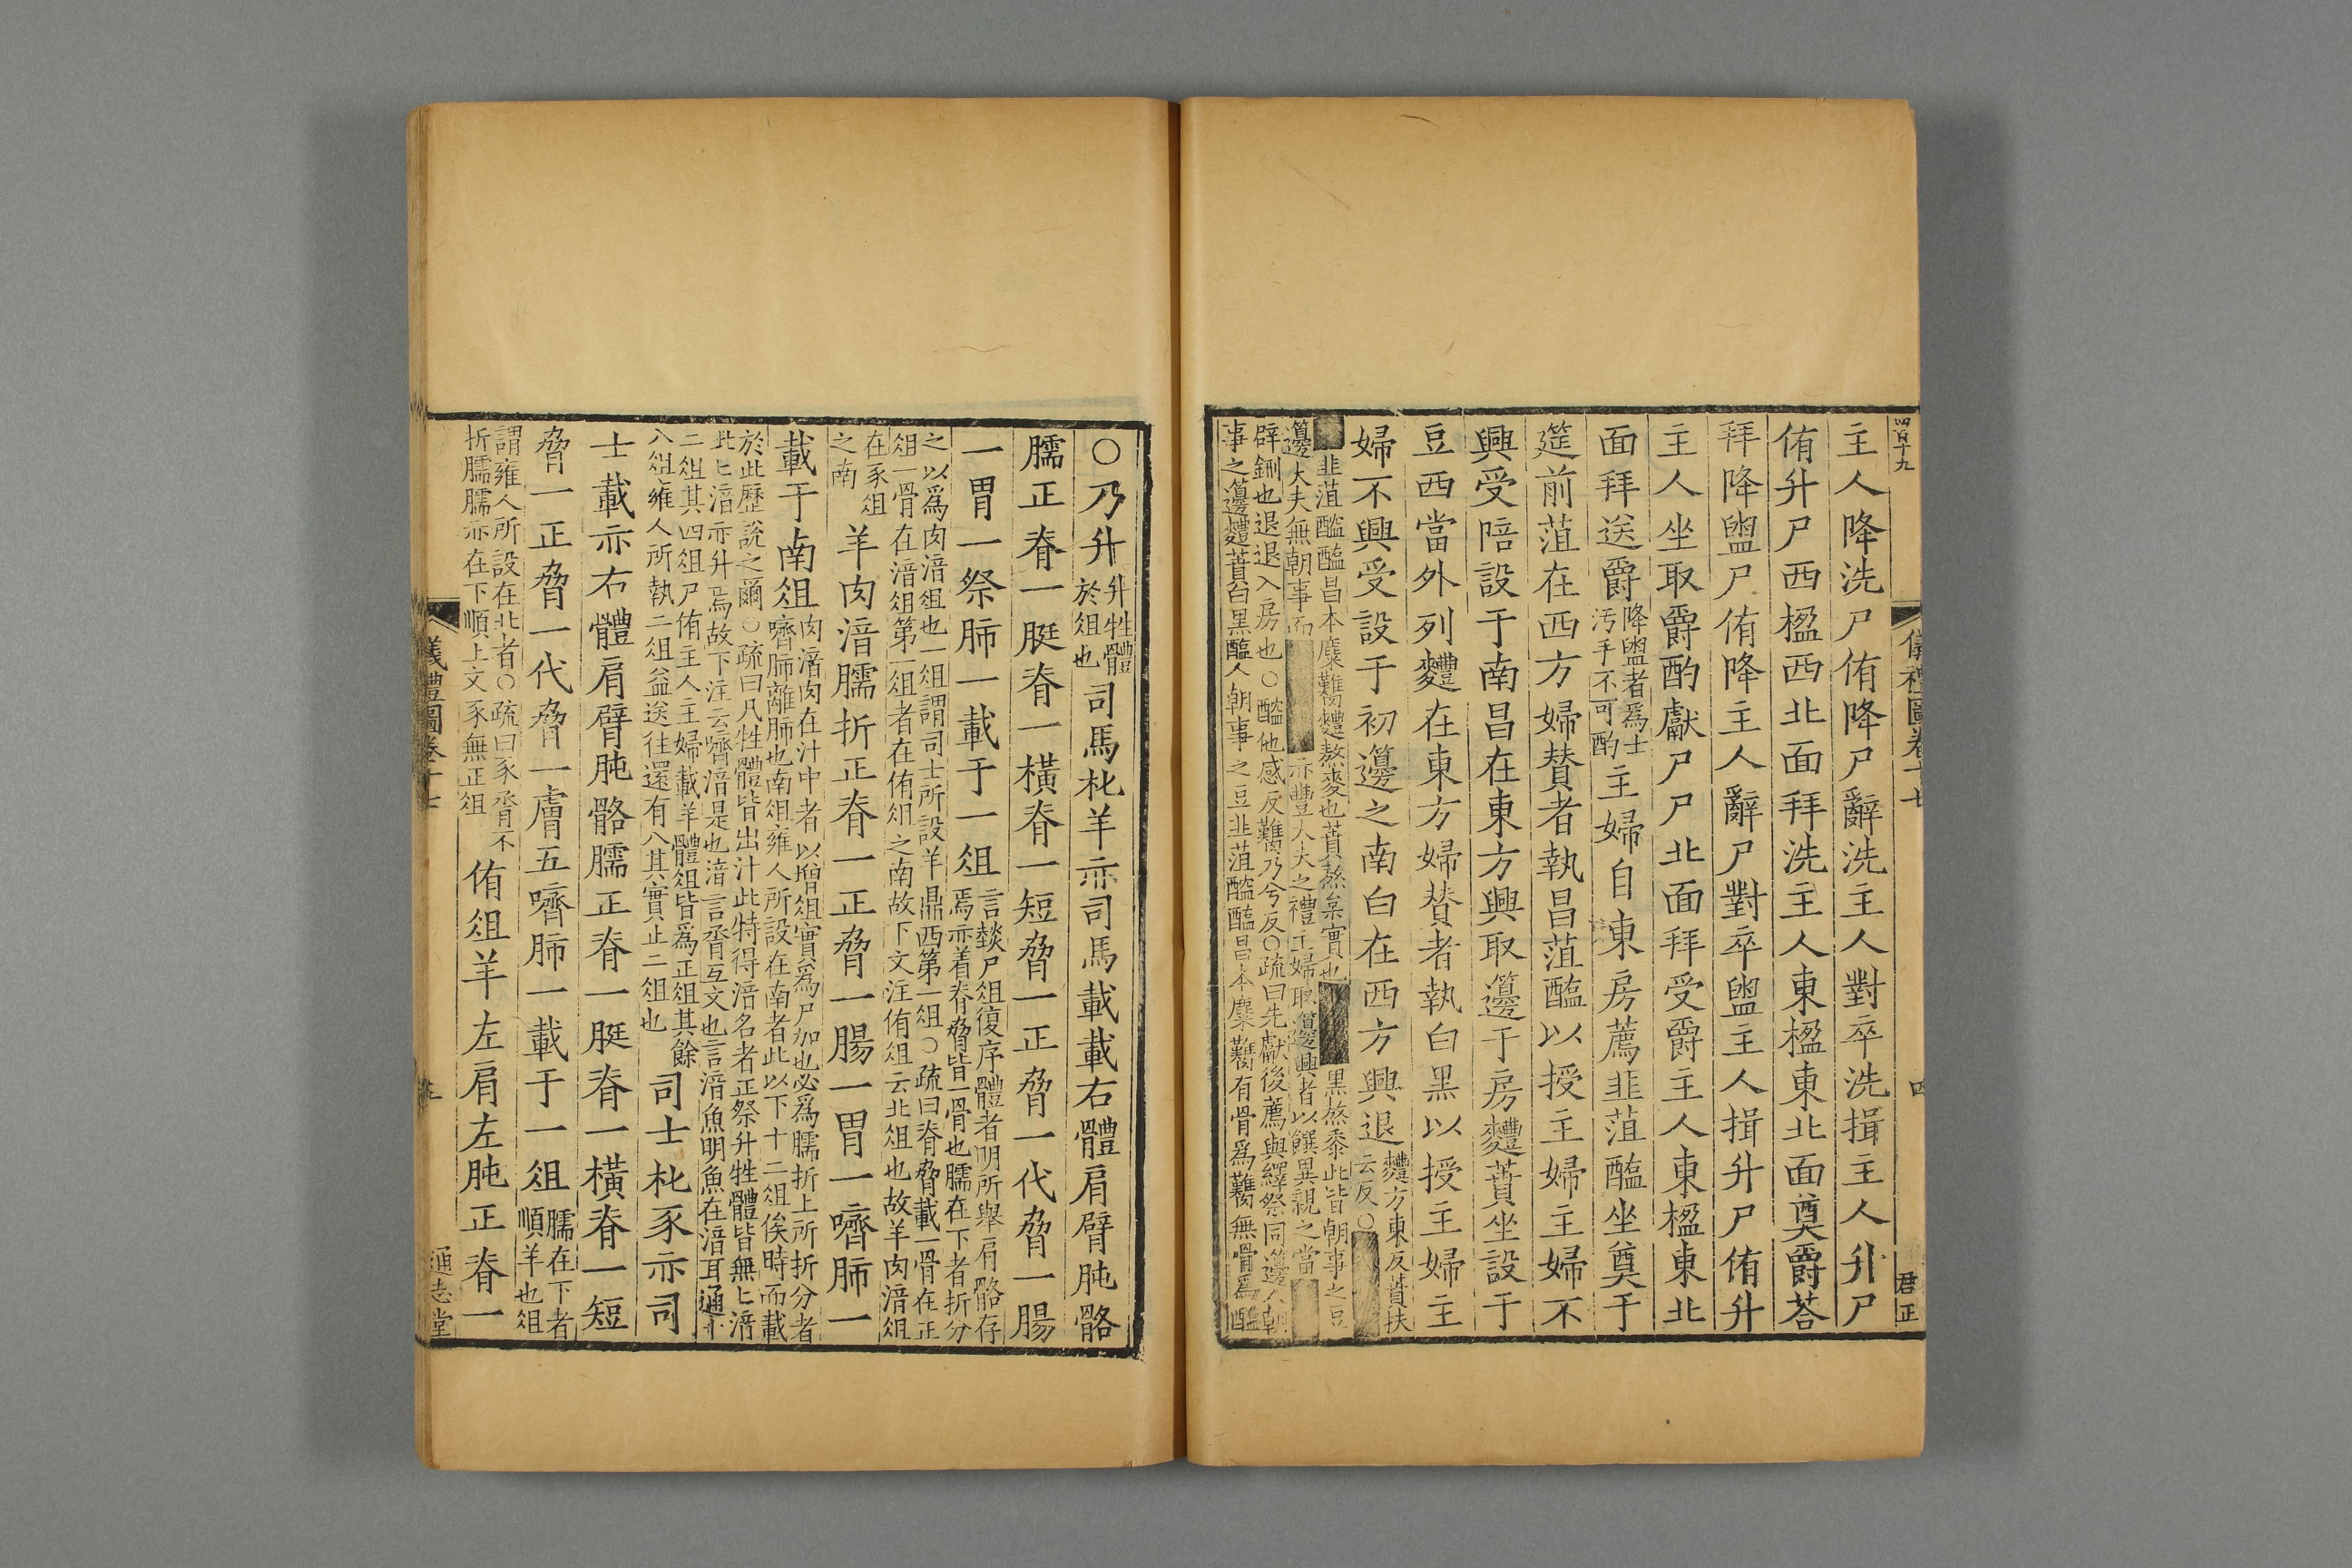 四百十九
儀禮圖卷十七
四
君正
主人降洗尸侑降尸辭洗主人對卒洗揖主人升尸
侑升尸西楹西北面拜洗主人東楹東北面奠爵荅
拜降盥尸侑降主人辭尸對卒盥主人揖升尸侑升
主人坐取爵酌獻尸尸北面拜受爵主人東楹東北
面拜送爵
降盥者爲士
汚手不可酌
主婦自東房薦韭菹醢坐奠于
筵前菹在西方婦贊者執昌菹醢以授主婦主婦不
興受陪設于南昌在東方興取籩于房麷蕡坐設于
豆西當外列麷在東方婦贊者執白黑以授主婦主
婦不興受設于初籩之南白在西方興退
麷方東反蕡扶
云反○
韭菹醓醢昌本麋臡麷熬麥也蕡熬枲實也
黑熬黍此皆朝事之豆
籩大夫無朝事而
亦豐大夫之禮主婦取籩興者以饌異親之當
辟鉶也退退入房也○醓他感反臡乃兮反○疏曰先獻後薦與繹祭同籩人朝
事之籩麷蕡白黑醢人朝事之豆韭菹醓醢昌本麋臡有骨爲臡無骨爲醢
○乃升
升牲體
於俎也
司馬朼羊亦司馬載載右體肩臂肫骼
臑正脊一脡脊一橫脊一短脅一正脅一代脅一腸
一胃一祭肺一載于一俎
言爇尸俎復序體者明所舉肩骼存
焉亦着脊脅皆一骨也臑在下者折分
之以爲肉湆俎也一俎謂司士所設羊鼎西第一俎○疏曰脊脅載一骨在正
俎一骨在湆俎第一俎者在侑俎之南故下文注侑俎云北俎也故羊肉湆俎
在豕俎
之南
羊肉湆臑折正脊一正脅一腸一胃一嚌肺一
載于南俎
肉湆肉在汁中者以增俎實爲尸加也必爲臑折上所折分者
嚌肺離肺也南俎雍人所設在南者此以下十二俎俟時而載
於此歷說之爾○疏曰凡牲體皆出汁此特得湆名者正祭升牲體皆無匕湆
此匕湆亦升焉故下注云嚌湆是也湆言脀互文也言湆魚明魚在湆耳通十
二俎其四俎尸侑主人主婦載羊體俎皆爲正俎其餘
八俎雍人所執二俎益送往還有八其實止二俎也
司士朼豕亦司
士載亦右體肩臂肫骼臑正脊一脡脊一橫脊一短
脅一正脅一代脅一膚五嚌肺一載于一俎
臑在下者
順羊也俎
謂雍人所設在北者○疏曰豕脀不
折臑臑亦在下順上文豕無正俎
侑俎羊左肩左肫正脊一
儀禮圖卷十七
通志堂